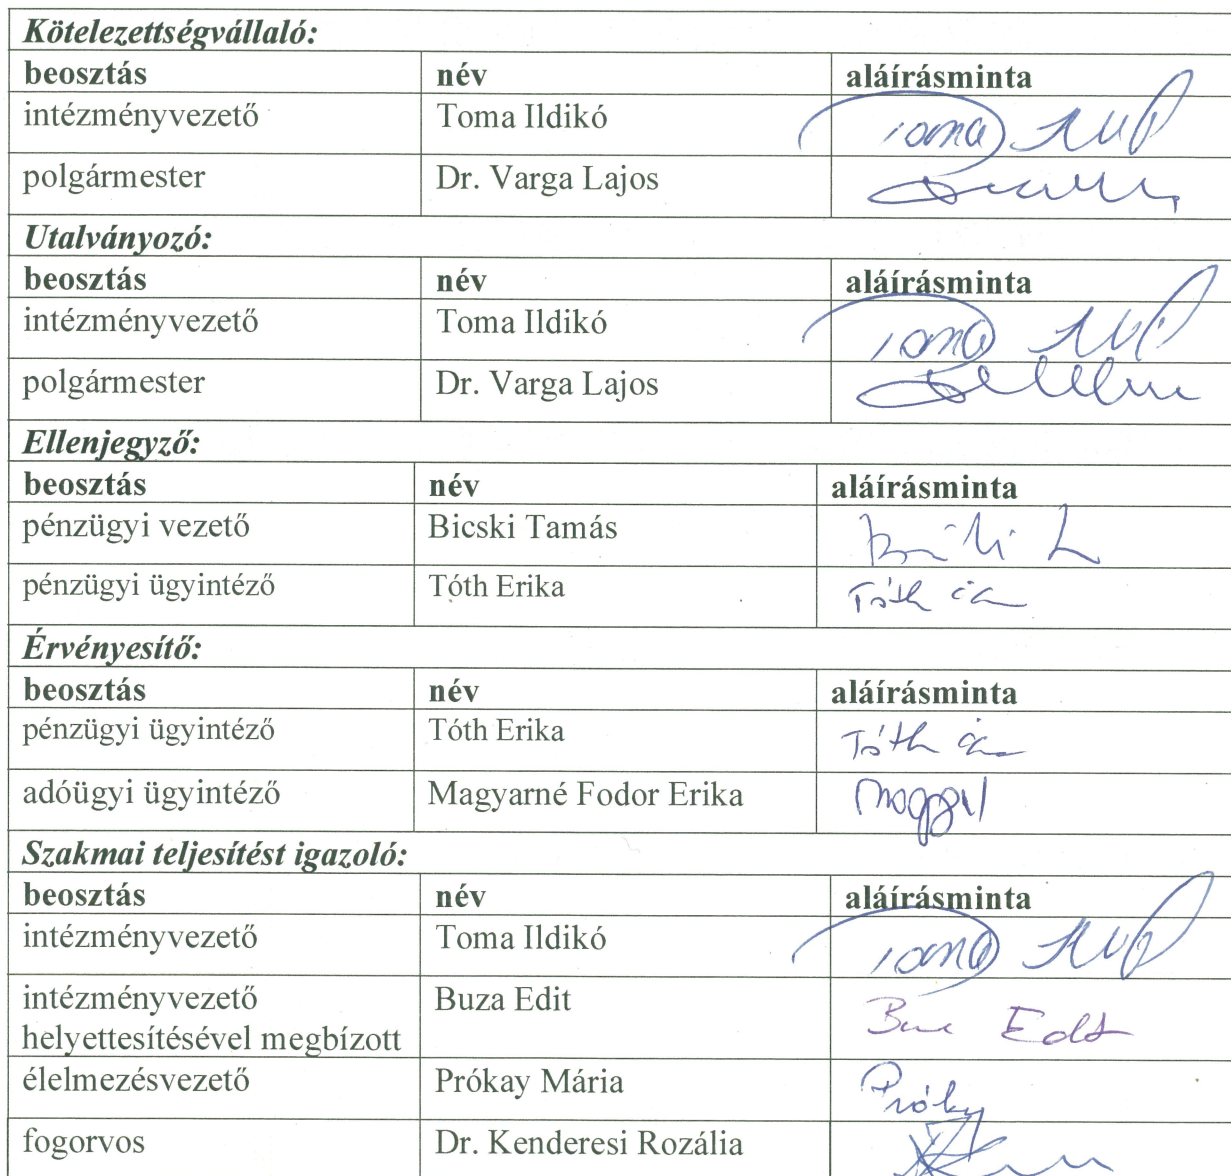 Kötelezettségvállaló:
beosztás név aláírásminta
intézményvezető Toma Ildikó Toma
polgármester Dr. Varga Lajos
Utalványozó:
beosztás név aláírásminta
intézményvezető Toma Ildikó Toma
polgármester Dr. Varga Lajos
Ellenjegyző:
beosztás név aláírásminta
pénzügyi vezető Bicski Tamás
pénzügyi ügyintéző Tóth Erika Tóth
Érvényesítő:
beosztás név aláírásminta
pénzügyi ügyintéző Tóth Erika Tóth
adóügyi ügyintéző Magyarné Fodor Erika
Szakmai teljesítést igazoló:
beosztás név aláírásminta
intézményvezető Toma Ildikó Toma
intézményvezető Buza Edit
helyettesítésével megbízott
élelmezésvezető Prókay Mária
fogorvos Dr. Kenderesi Rozália